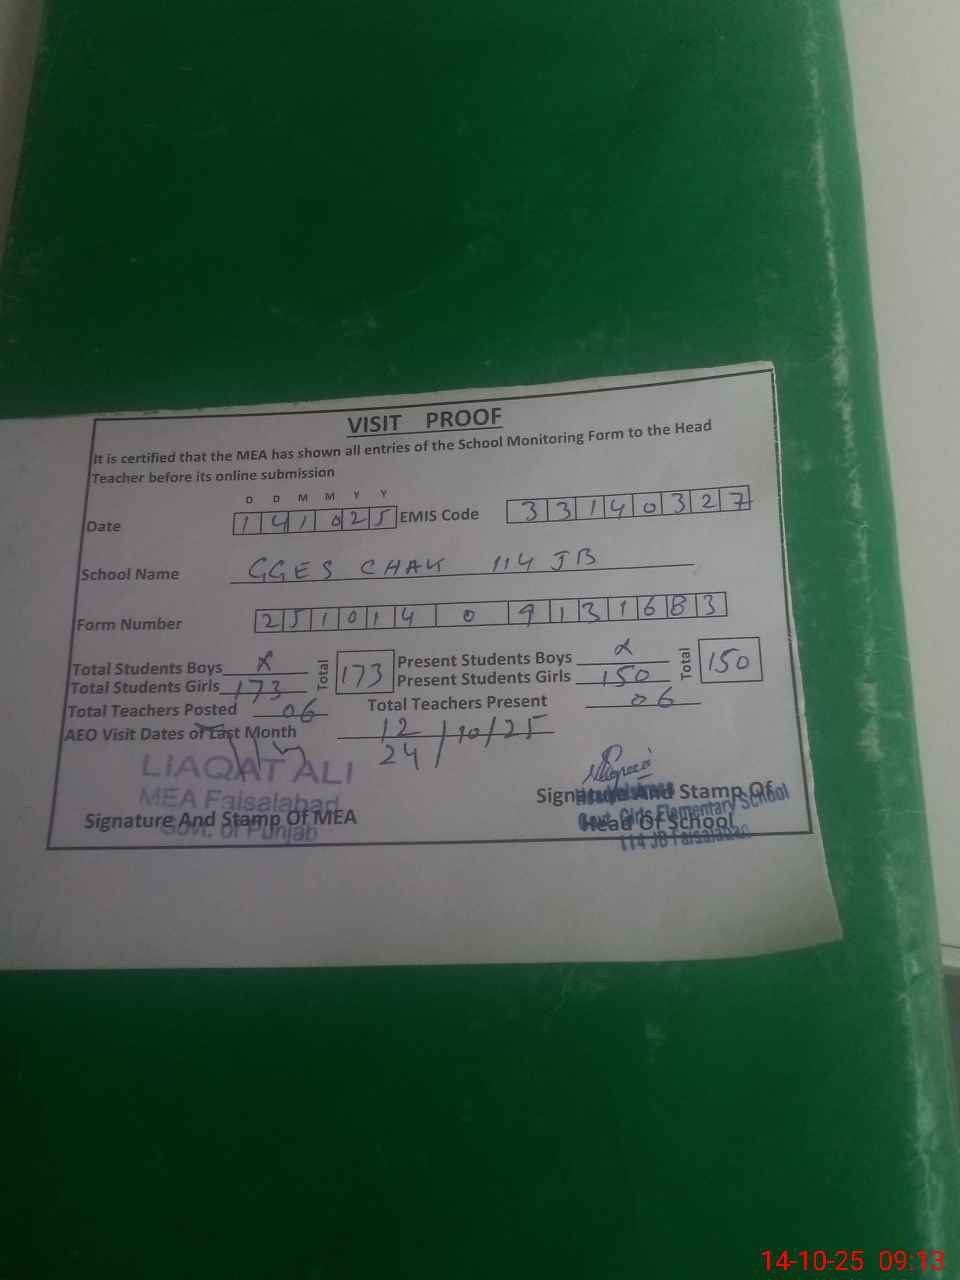 VISIT PROOF
It is certified that the MEA has shown all entries of the School Monitoring Form to the Head
Teacher before its online submission
D D M M Y Y
Date 141025 EMIS Code 33140327
School Name GGES CHAK 114 JB
Form Number 251014 0 9131683
Total Students Boys x Total 173 Present Students Boys x Total 150
Total Students Girls 173 Present Students Girls 150
Total Teachers Posted 06 Total Teachers Present 06
AEO Visit Dates of Last Month 12/10/25
24
LIAQAT ALI
MEA Faisalabad
Govt. of Punjab
Signature And Stamp Of MEA
Signature And Stamp Of
Head Of School
Govt. Girls Elementary School
114 JB Faisalabad
14-10-25 09:13